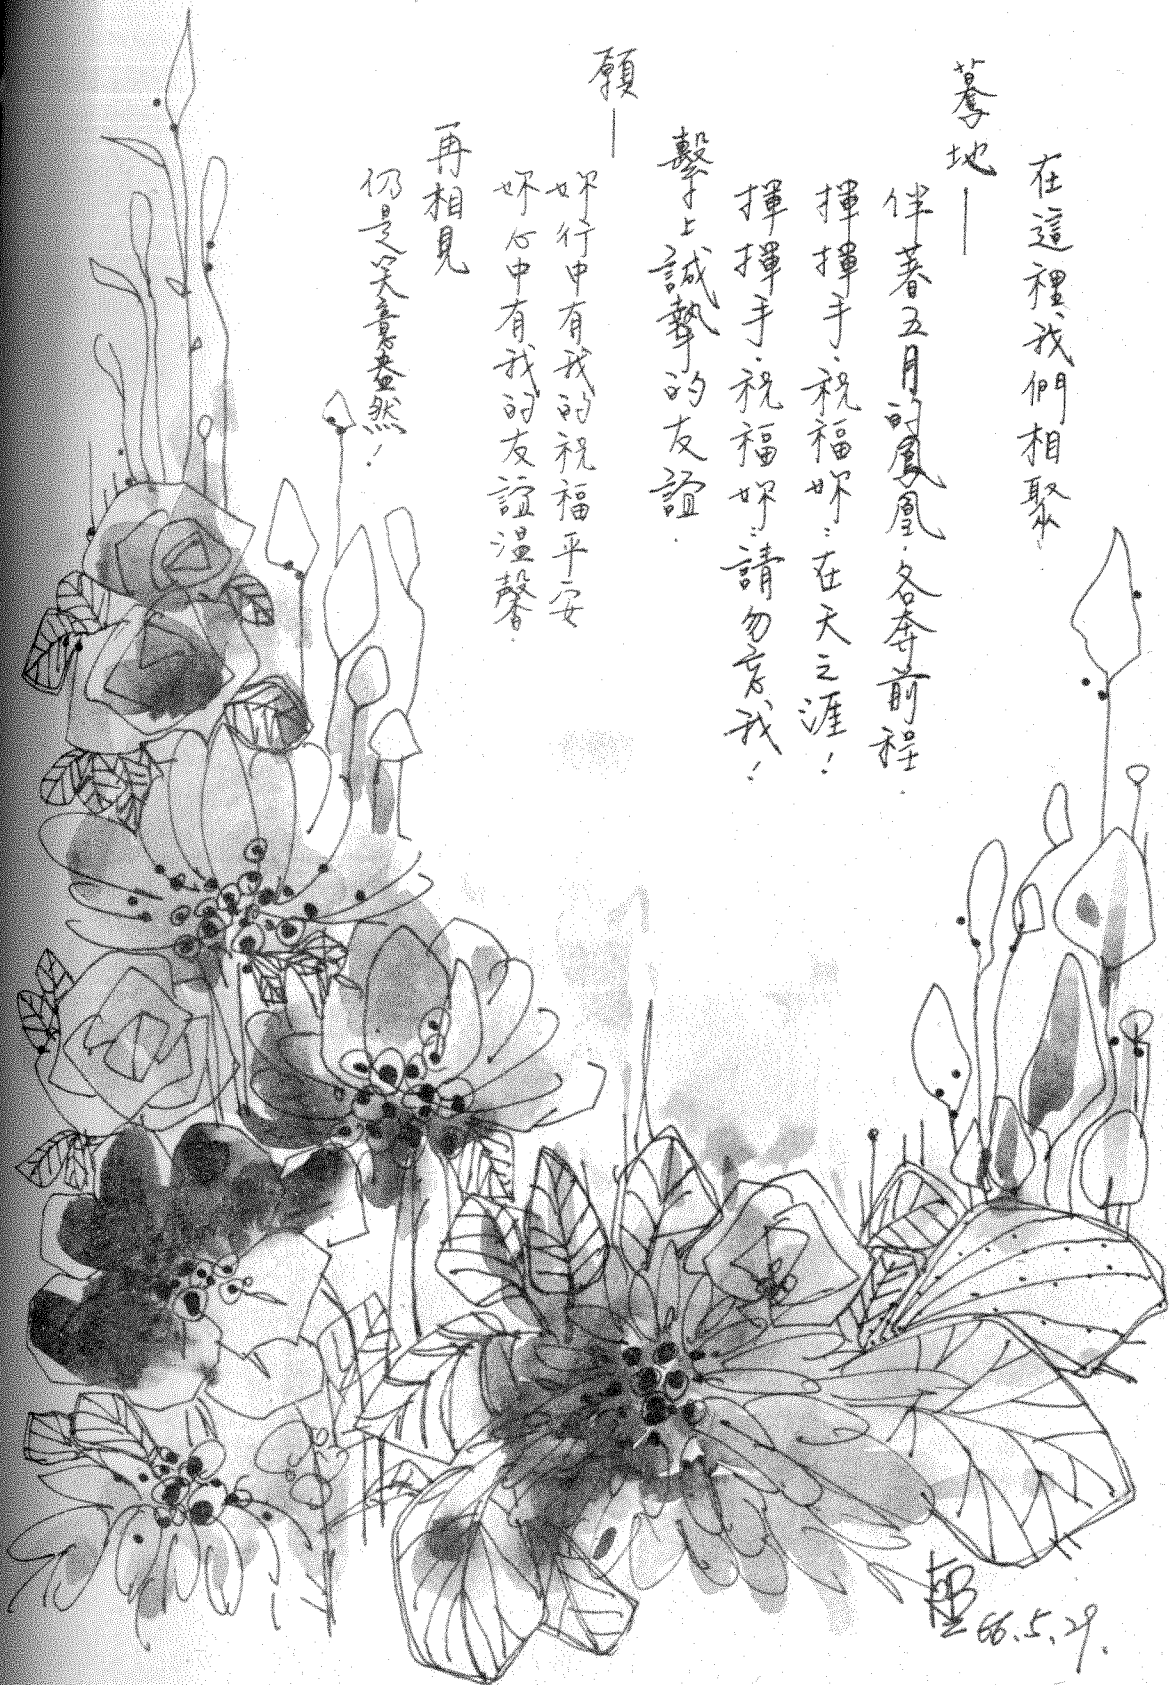 在這裡我們相聚
驀地—
伴著五月的鳳凰．各奔前程．
揮揮手．祝福妳：在天之涯！
揮揮手．祝福妳：請勿忘我！
繫上誠摯的友誼．
願—
妳行中有我的祝福平安
妳心中有我的友誼溫馨．
再相見
仍是笑意盎然！
66.5.29.